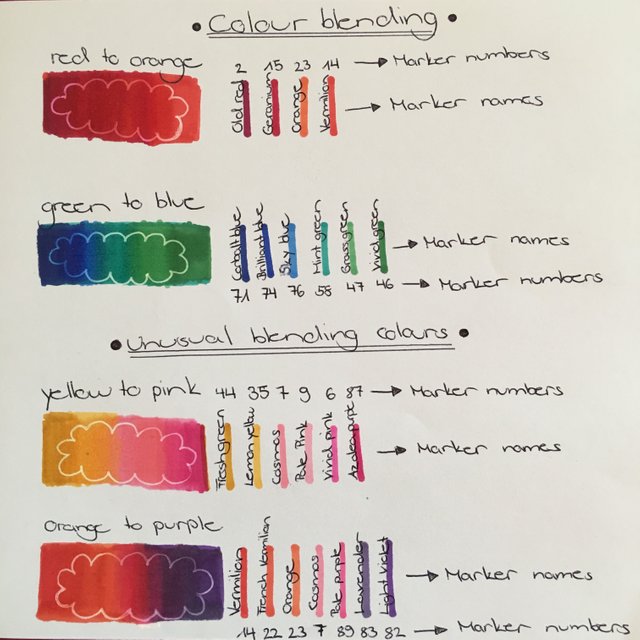 • Colour blending •
red to orange
2 15 23 14 → Marker numbers
Old red Geranium Orange Vermilion → Marker names
green to blue
Cobalt blue Brilliant blue Sky blue Mint green Grass green Vivid green → Marker names
71 74 76 58 47 46 → Marker numbers
• Unusual blending colours •
yellow to pink 44 35 7 9 6 87 → Marker numbers
Fresh green Lemon yellow Cosmos Pale Pink Vivid pink Azalea purple → Marker names
Orange to purple
Vermilion French Vermilion Orange Cosmos Pale purple Lavender Light Violet → Marker names
14 22 23 7 89 83 82 → Marker numbers